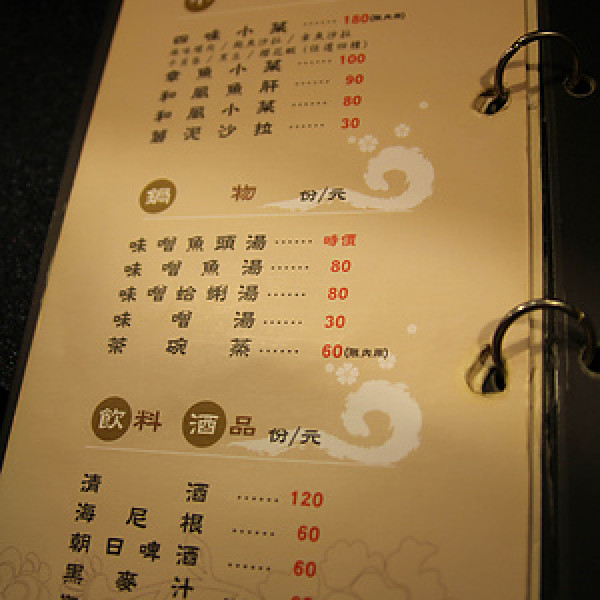 四味小菜 ······ 180(限內用)
章魚小菜 ······ 100
和風魚肝 ······ 90
和風小菜 ······ 80
薯泥沙拉 ······ 30
鍋物 份/元
味噌魚頭湯 ······ 時價
味噌魚湯 ······ 80
味噌蛤蜊湯 ······ 80
味噌湯 ······ 30
茶碗蒸 ······ 60(限內用)
飲料 酒品 份/元
清酒 ······ 120
海尼根 ······ 60
朝日啤酒 ······ 60
黑麥汁